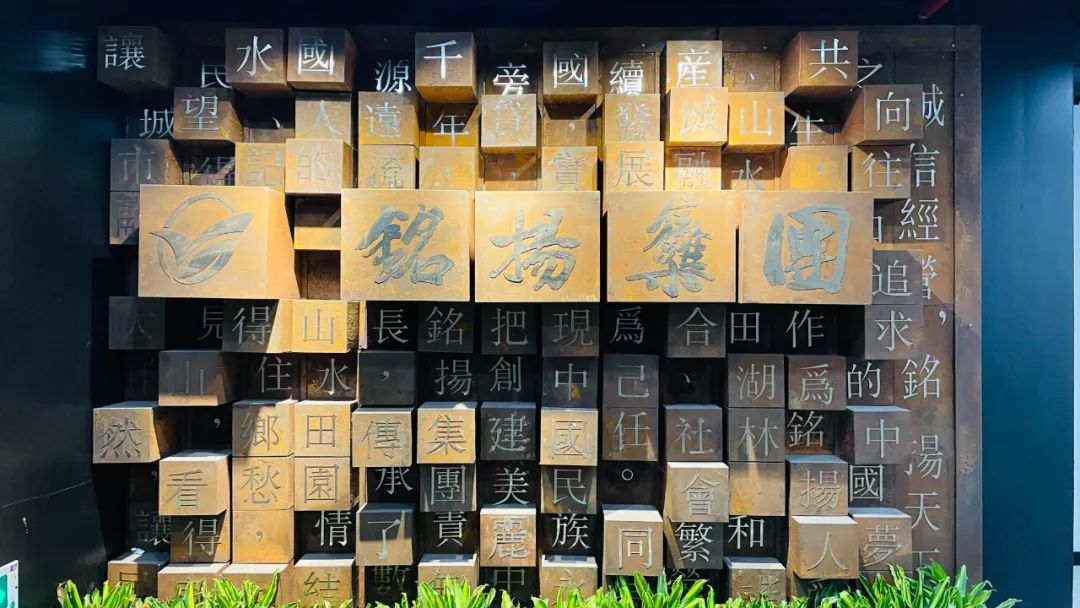 銘揚集團
讓城市融大然，讓
民望得見山，看得
水、記得住鄉愁，
國人的山水田園情結
源遠流長，傳承了數
千年，銘揚集團責
旁貸，把創建美麗中
國，實現中國民族永
續發展爲己任。同
産城融合、社會繁
、山水田湖林和
共生，作爲銘揚人
之向往追求的中國夢
誠信經營，銘揚天下